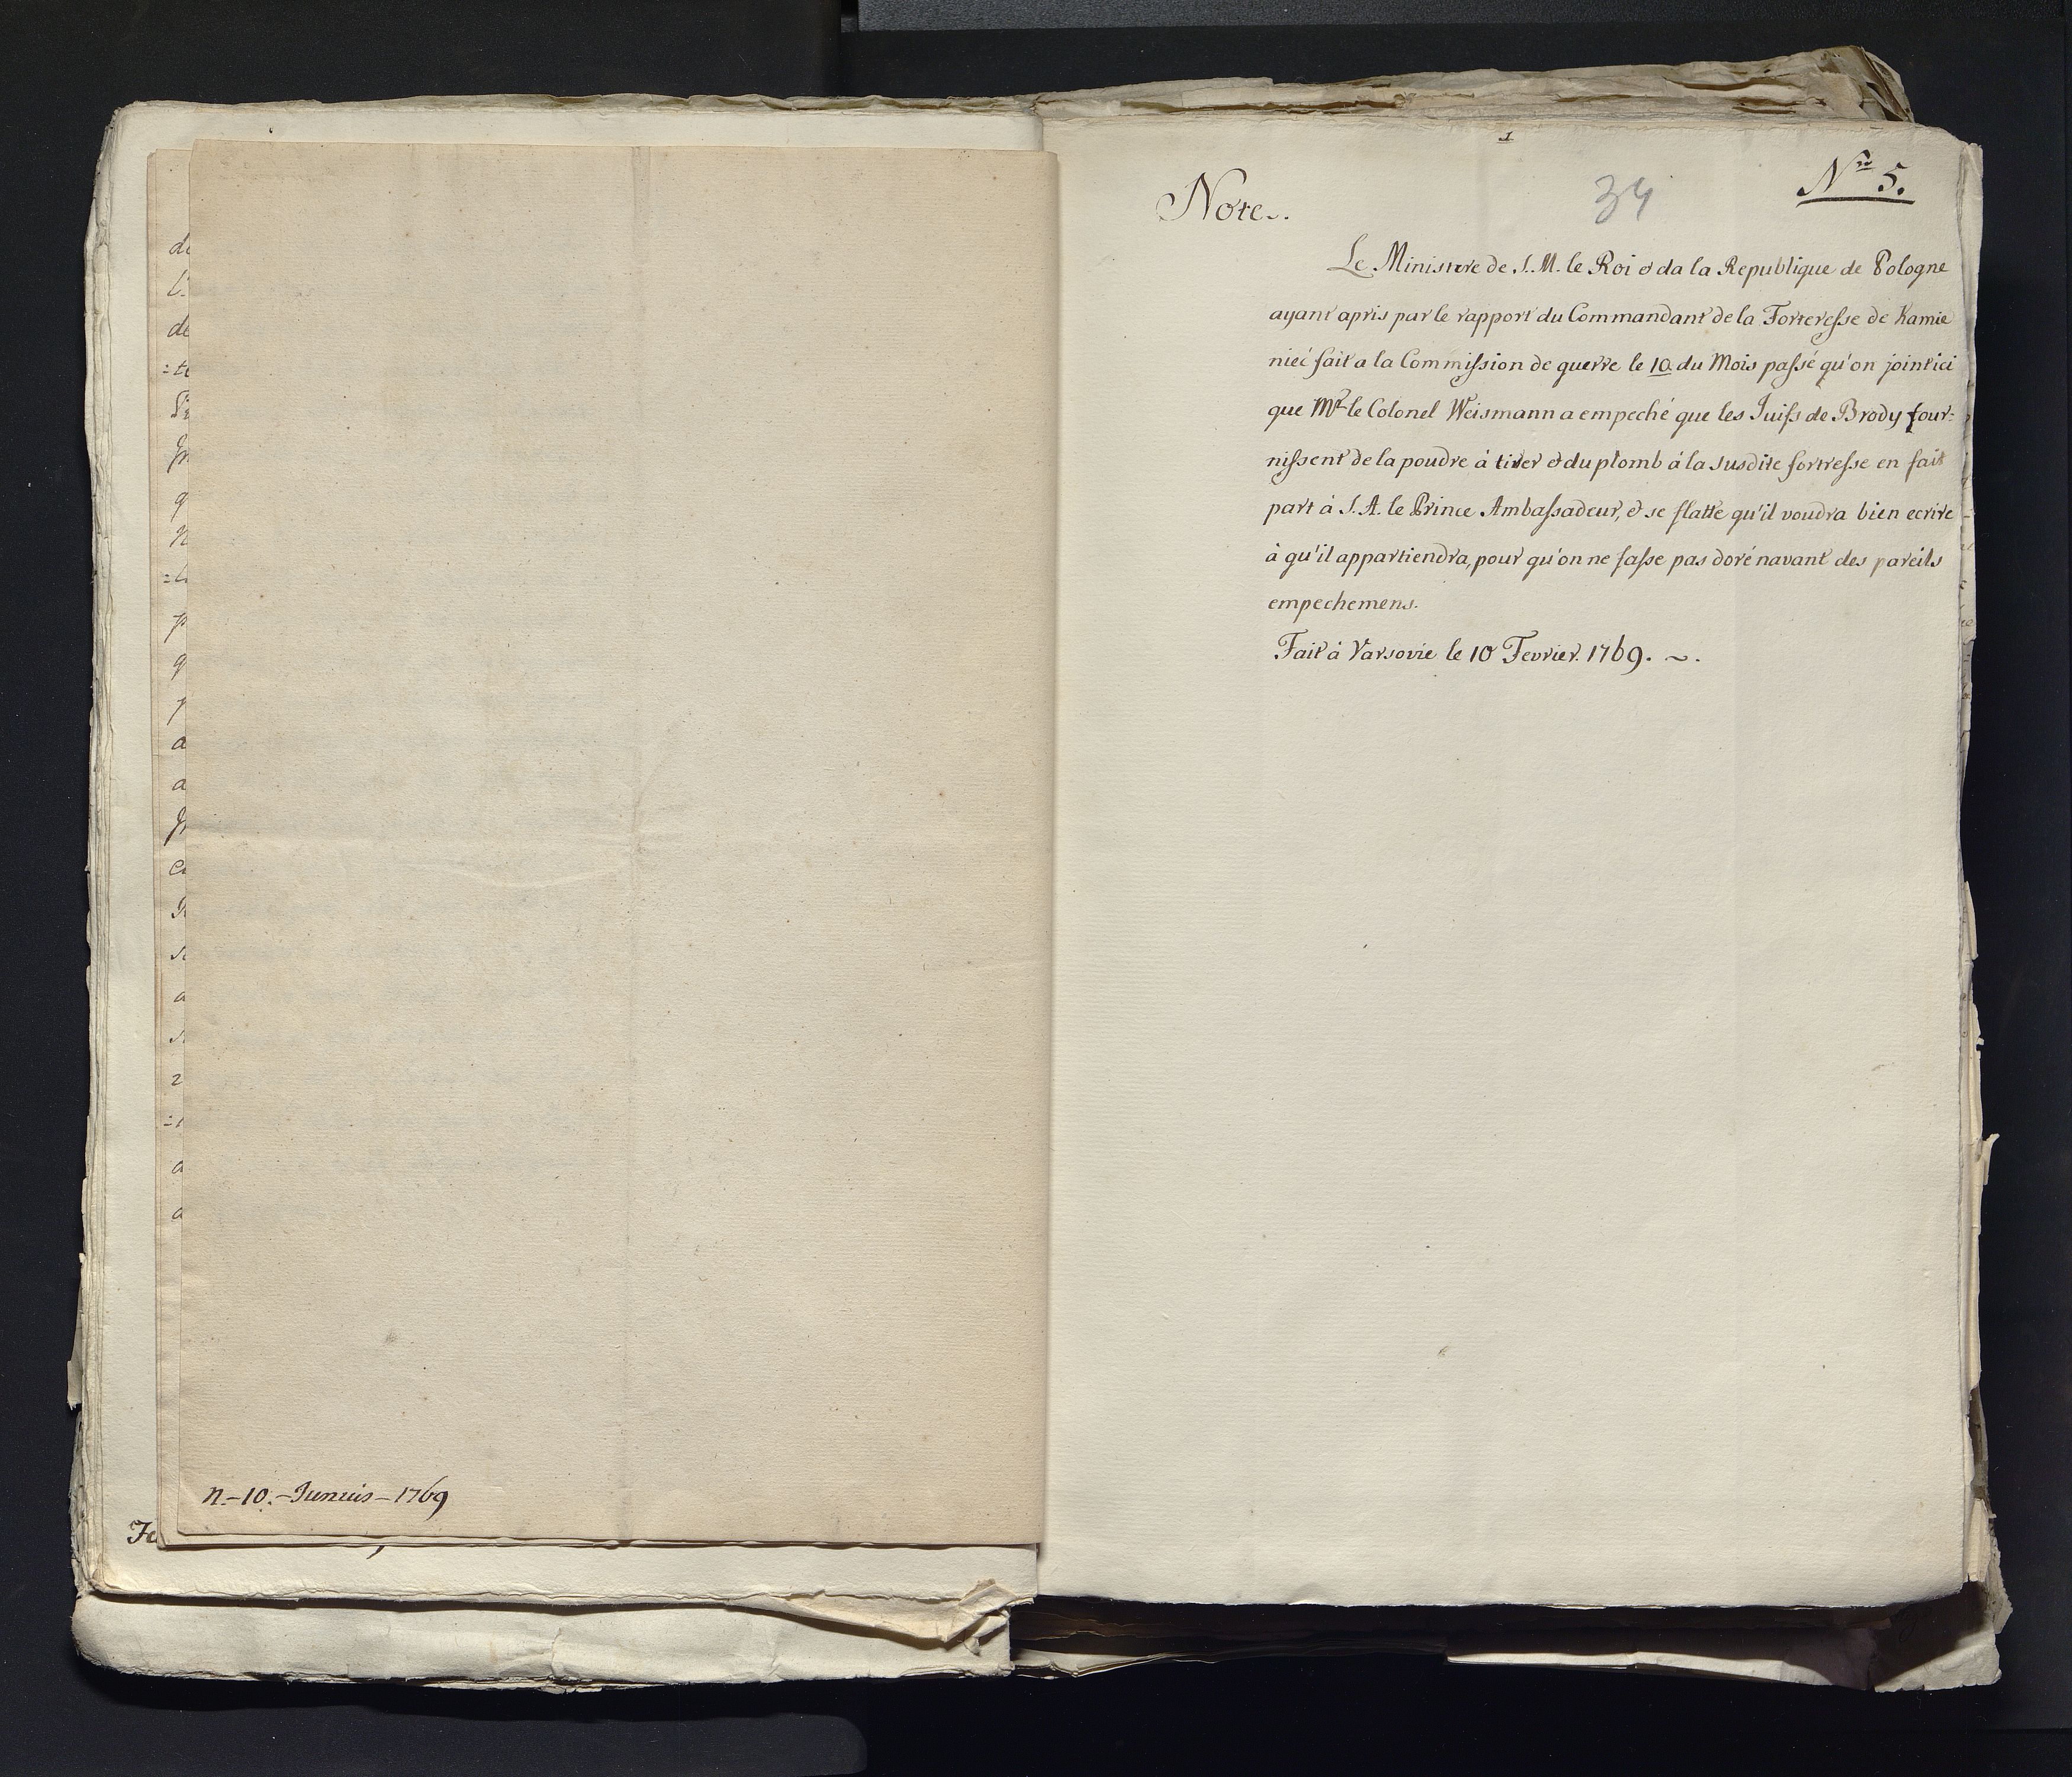 n.-10.-Junuis-1769
1
34
Nro 5.
Note.
Le Ministere de S. M. le Roi & da la Republique de Pologne
ayant apris par le rapport du Commandant de la Forteresse de Kamie
niec fait a la Commission de guerre le 10 du Mois passé qu'on joint ici
que Mr. le Colonel Weismann a empeché que les Juifs de Brody four-
nissent de la poudre à tirer & du plomb à la susdite fortresse en fait
part à S. A. le Prince Ambassadeur, & se flatte qu'il voudra bien ecrire
à qu'il appartiendra, pour qu'on ne fasse pas dorénavant des pareils
empechemens.
Fait à Varsovie le 10 Fevrier. 1769. ~.